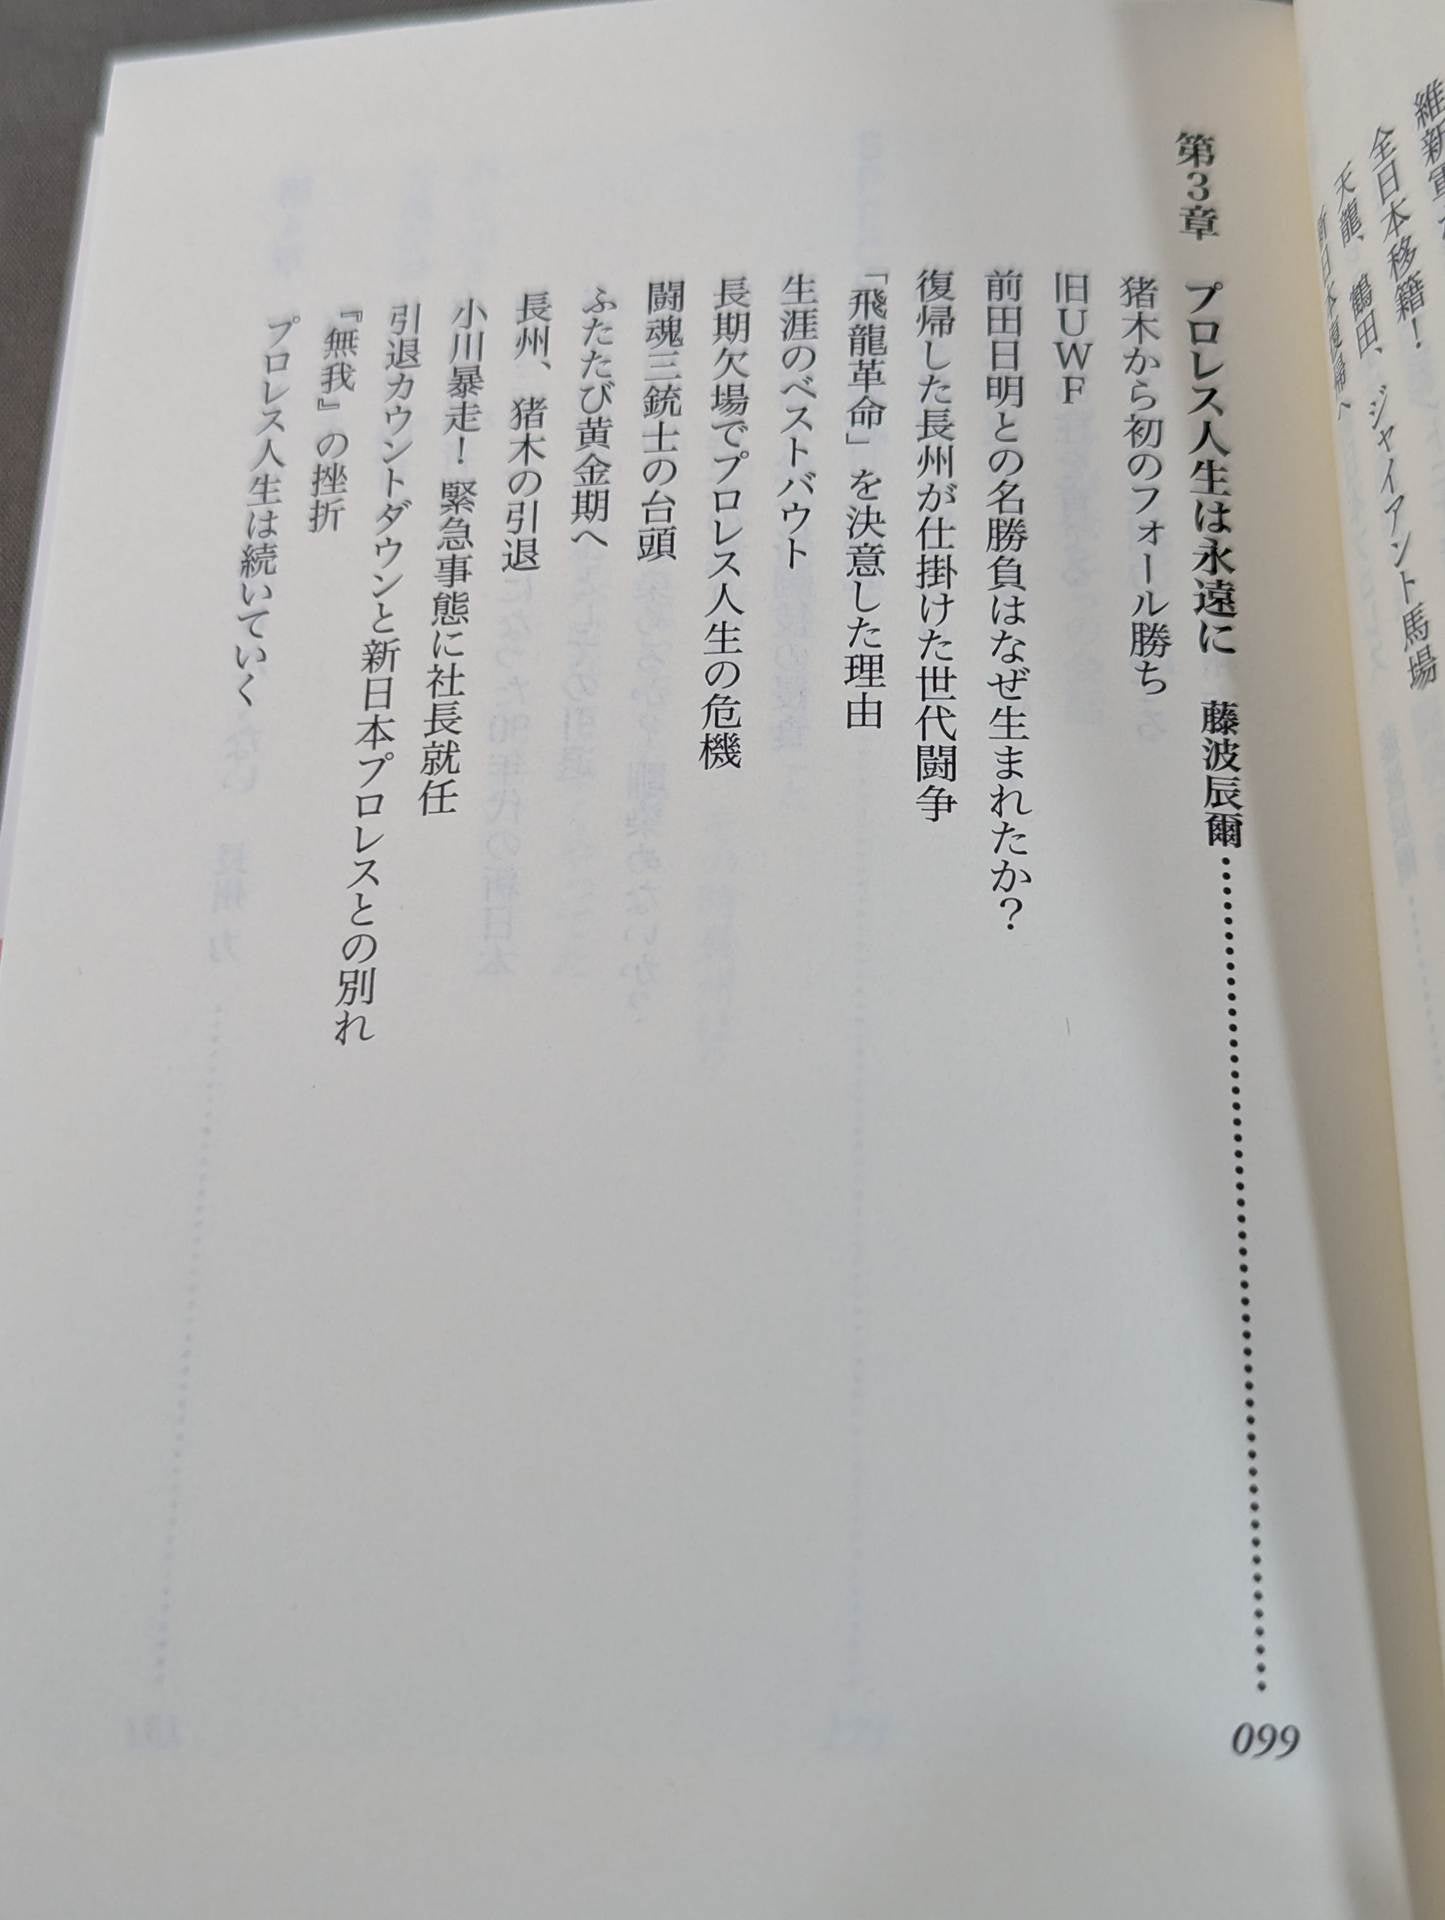 維新軍
全日本移籍！
天龍、鶴田、ジャイアント馬場
新日本復帰へ
第3章 プロレス人生は永遠に 藤波辰爾 099
猪木から初のフォール勝ち
旧UWF
前田日明との名勝負はなぜ生まれたか？
復帰した長州が仕掛けた世代闘争
「飛龍革命」を決意した理由
生涯のベストバウト
長期欠場でプロレス人生の危機
闘魂三銃士の台頭
ふたたび黄金期へ
長州、猪木の引退
小川暴走！ 緊急事態に社長就任
引退カウントダウンと新日本プロレスとの別れ
『無我』の挫折
プロレス人生は続いていく